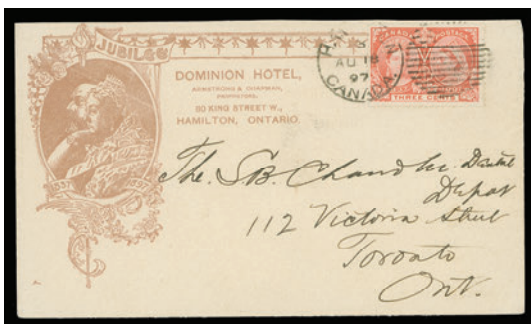 JUBILEE
DOMINION HOTEL,
ARMSTRONG & CHAPMAN,
PROPRIETORS,
80 KING STREET W.,
HAMILTON, ONTARIO.
1837 1897
CANADA POSTAGE
THREE CENTS
AU 18
97
CANADA
The. S.B. Chandler Dental
Depot
112 Victoria Street
Toronto
Ont.